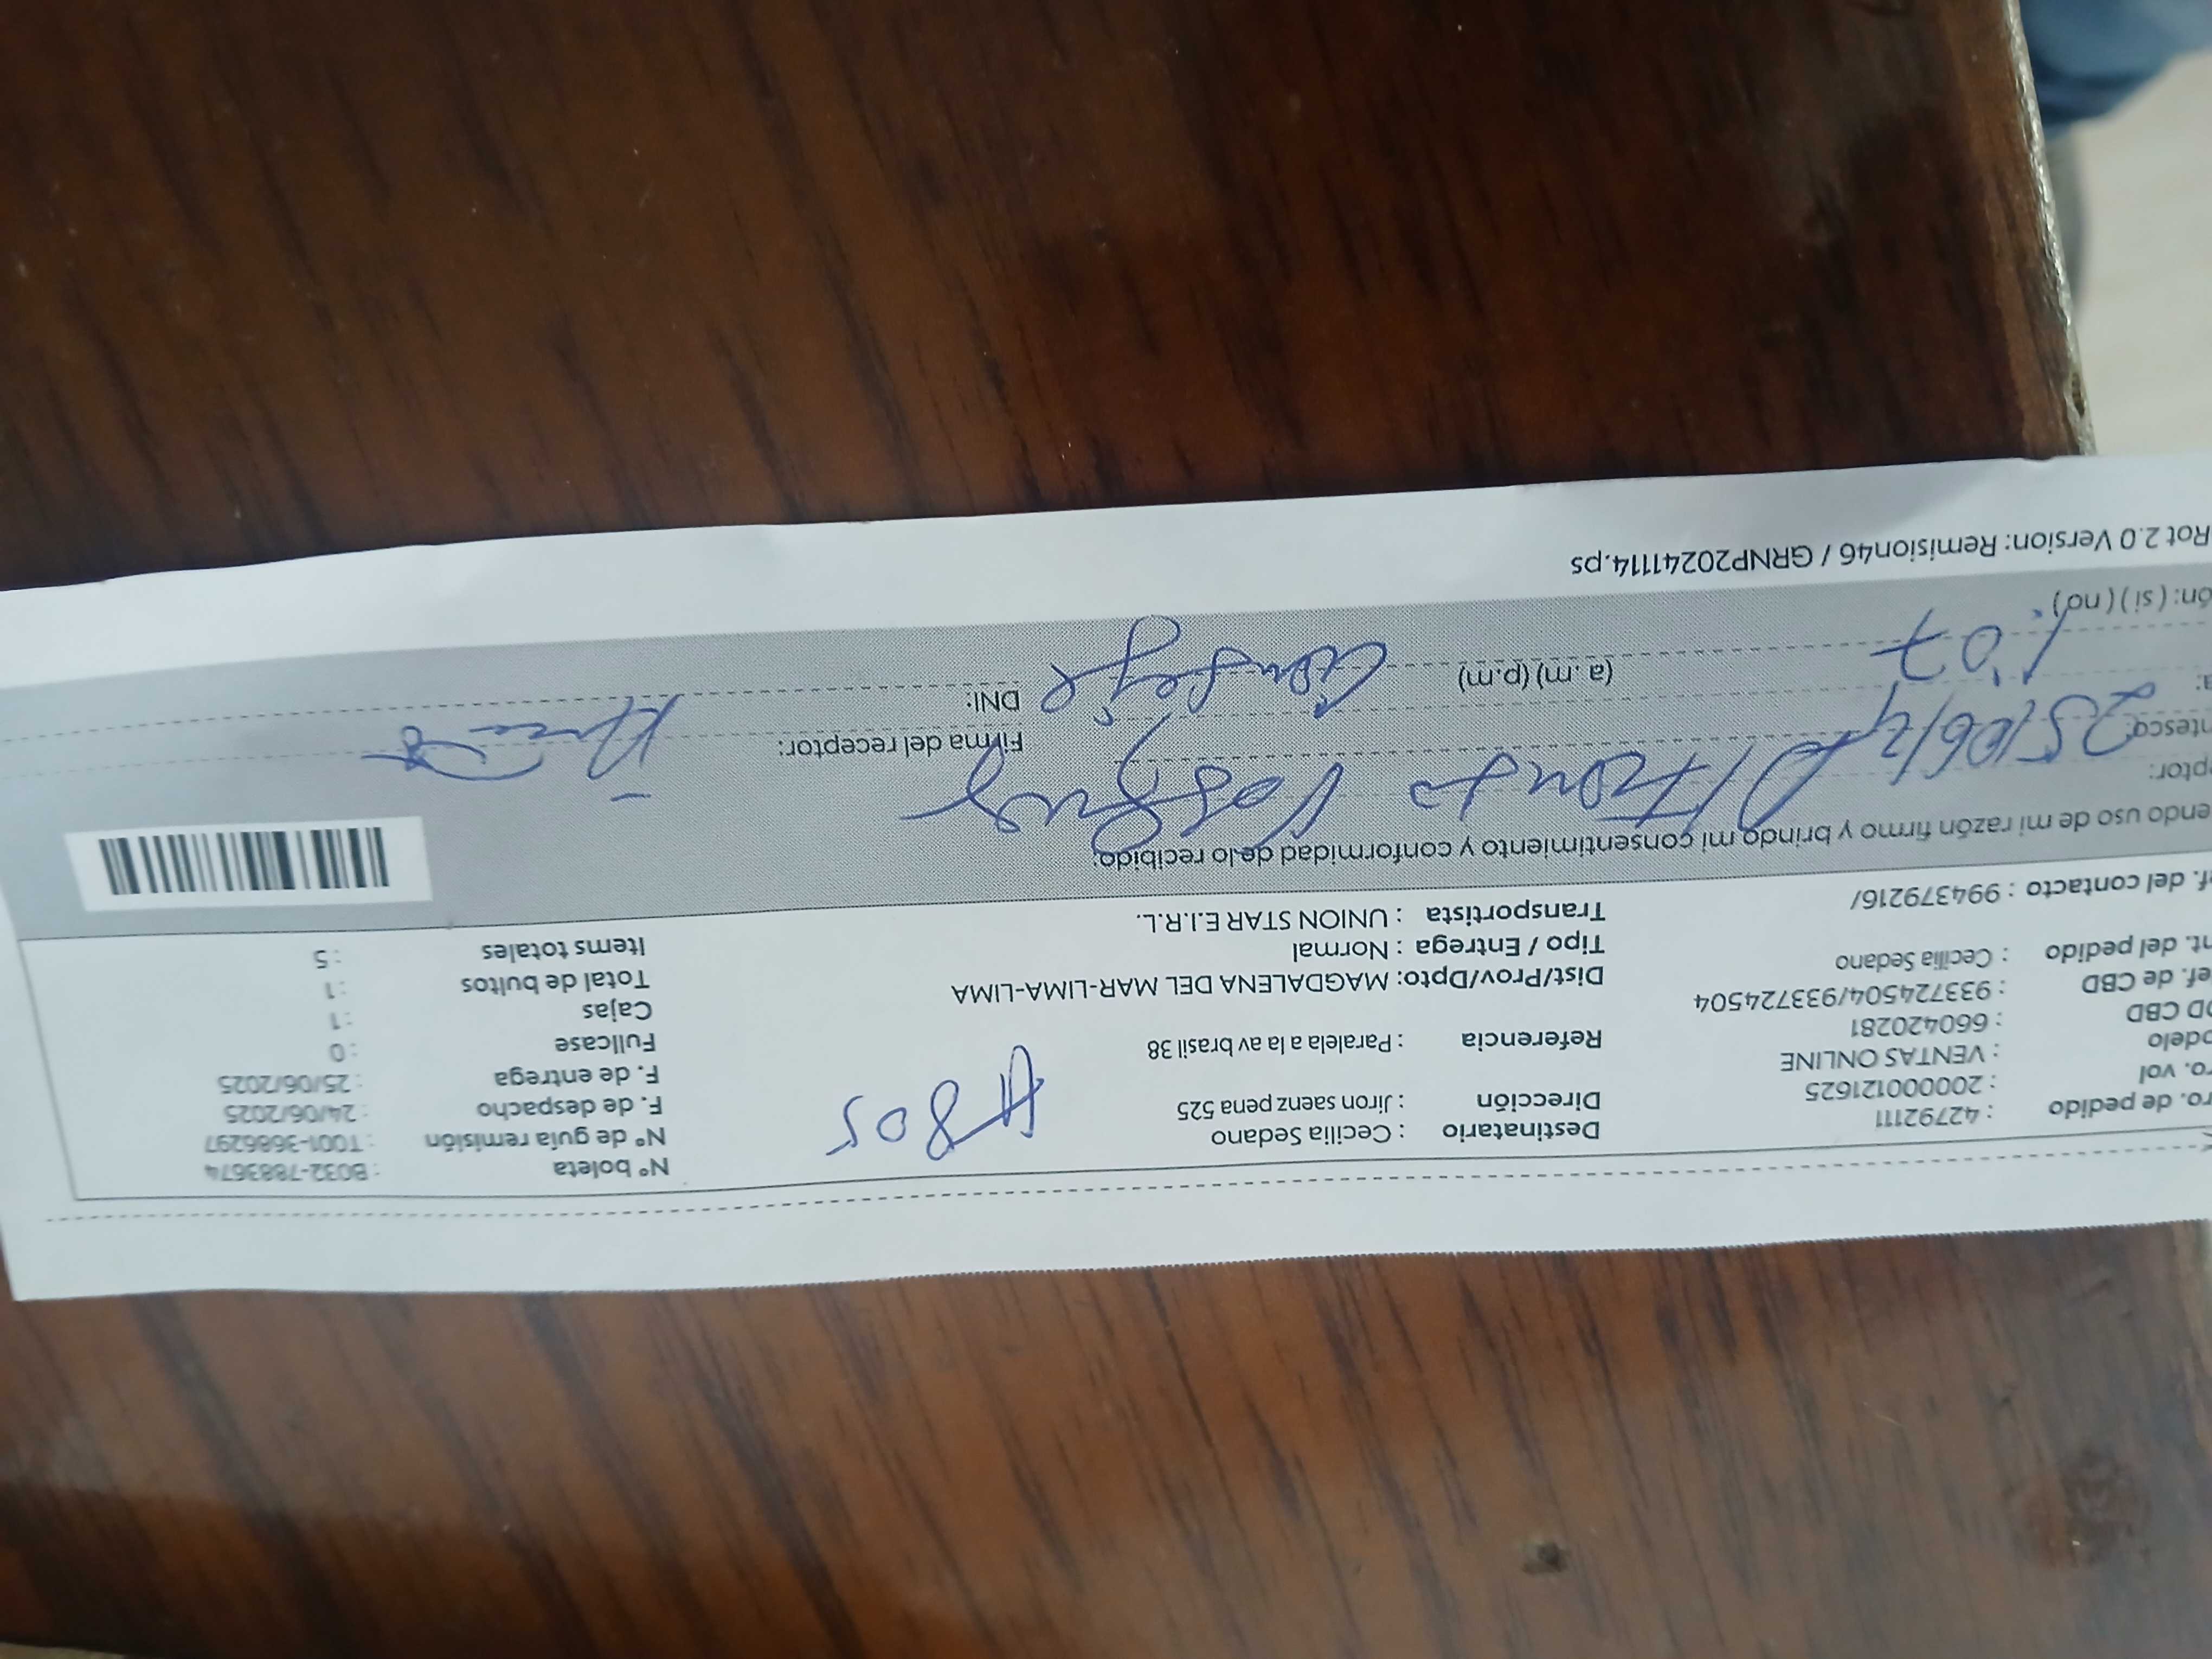 ro. de pedido : 42792111
ro. vol : 20000121625
odelo : VENTAS ONLINE
OD CBD : 660420281
ef. de CBD : 933724504/933724504
nt. del pedido : Cecilia Sedano
ef. del contacto : 994379216/
Destinatario : Cecilia Sedano
Dirección : Jiron saenz pena 525
Referencia : Paralela a la av brasil 38
Dist/Prov/Dpto: MAGDALENA DEL MAR-LIMA-LIMA
Tipo / Entrega : Normal
Transportista : UNION STAR E.I.R.L.
A 805
N° boleta : B032-7883674
N° de guía remisión : T001-3686297
F. de despacho : 24/06/2025
F. de entrega : 25/06/2025
Fullcase : 0
Cajas : 1
Total de bultos : 1
Items totales : 5
endo uso de mi razón firmo y brindo mi consentimiento y conformidad de lo recibido:
eptor:
ntesco:
Firma del receptor:
a: 25/06/
1:07 (a.m) (p.m)
DNI:
ón: ( si ) ( no )
Rot 2.0 Version: Remision46 / GRNP20241114.ps